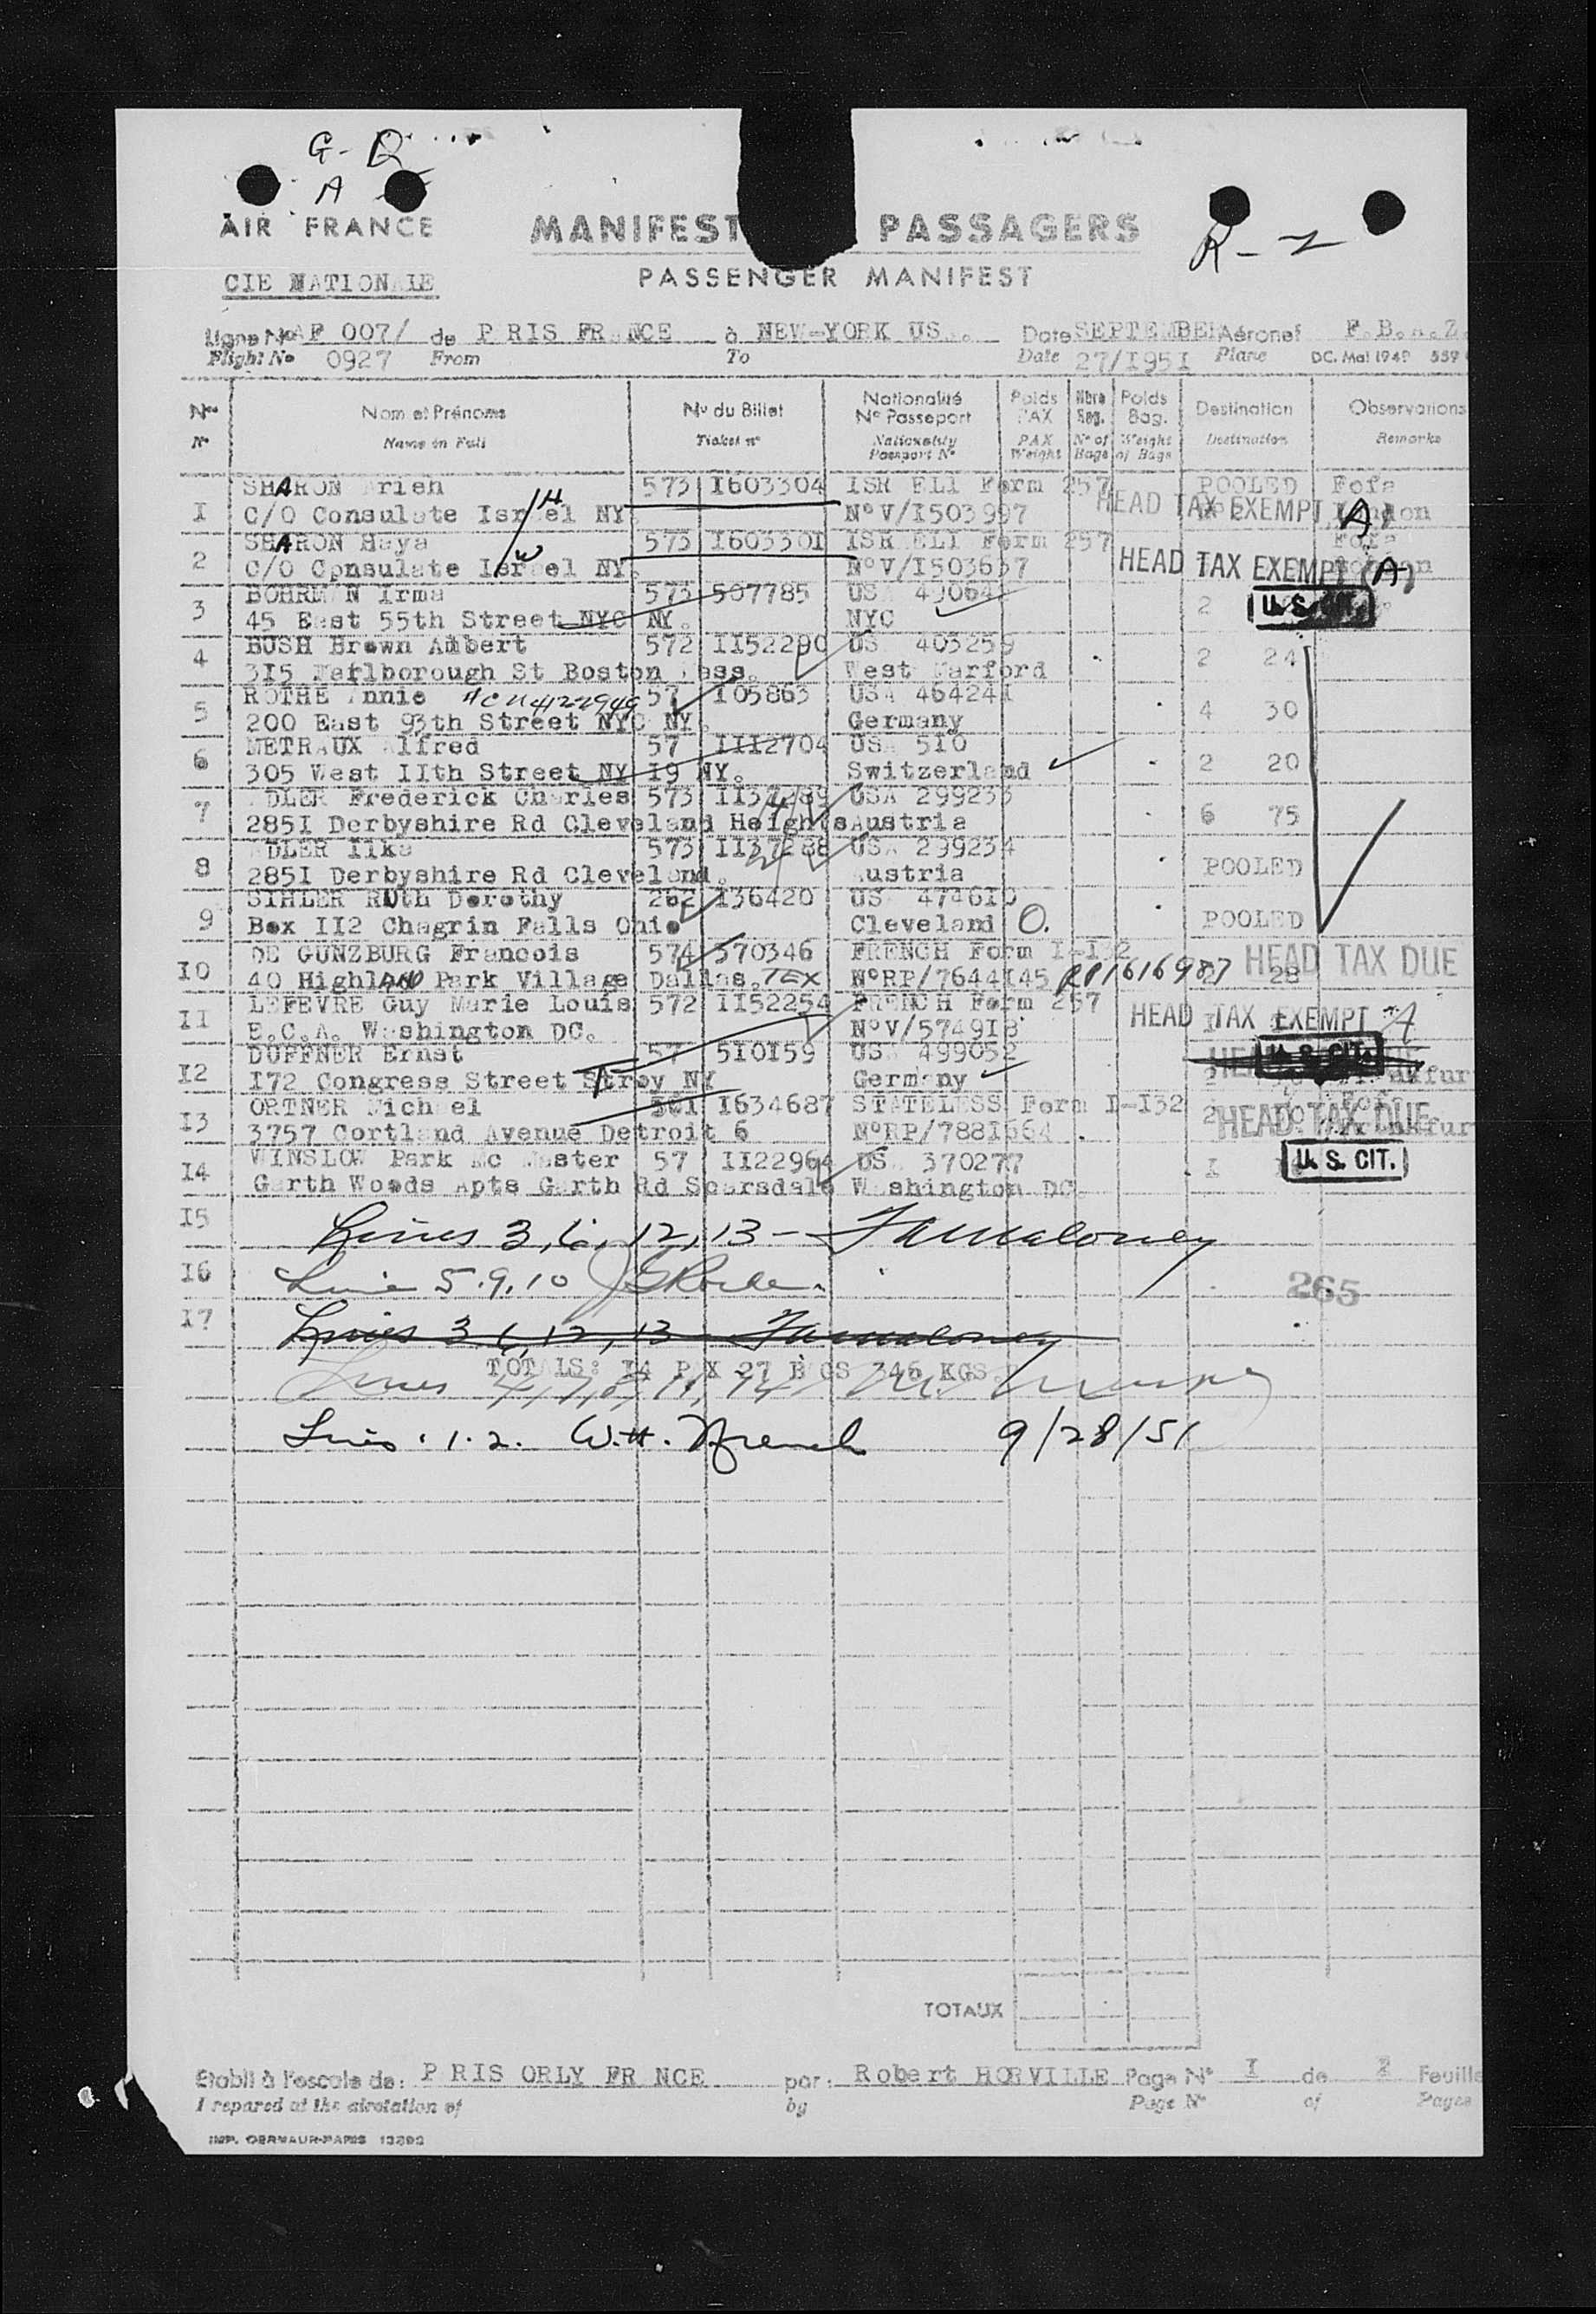 G-
A
AIR FRANCE
MANIFEST PASSAGERS
R-2
CIE NATIONALE
PASSENGER MANIFEST
Ligne No AF 007/ de P RIS FR NCE à NEW-YORK US Date SEPTEMBER Aéronef F.B.A.Z.
Flight No 0927 From To Date 27/I95I Plane DC. Mai 1949 559
Nos Nom et Prénoms No du Billet Nationalité No Passeport Poids PAX Nbre Bag. Poids Bag. Destination Observations
No Name in Full Ticket no Nationality Passport No PAX Weight No of Bags Weight of Bags Destination Remarks
SHARON rieh 573 I603304 ISR ELI Form 257 POOLED Fofa
I C/O Consulate Isr el NY. No V/I503997 HEAD TAX EXEMPT A) London
SHARON Haya 573 I60330I ISR ELI Form 257 Fofa
2 C/O Cpnsulate Isr el NY. No V/I503637 HEAD TAX EXEMPT (A)
BOHRM N Irma 573 507785 US 49064
3 45 East 55th Street NYC NY. NYC 2 U. S. CIT.
BUSH Brown Albert 572 II52290 US 403259
4 3I5 Marlborough St Boston ass. West Harford 2 24
ROTHE nnie 57 I05863 USA 46424I
5 200 East 93th Street NYC NY. Germany 4 30
METRAUX lfred 57 III2704 USA 5I0
6 305 West IIth Street NY I9 NY. Switzerland 2 20
DLER Frederick Charles 573 II37289 USA 299233
7 285I Derbyshire Rd Cleveland Heights Austria 6 75
DLER Ilka 573 II37288 USA 299234
8 285I Derbyshire Rd Cleveland. ustria POOLED
SIHLER RUth Dorothy 262 I36420 US 4746I0
9 Box II2 Chagrin Falls Ohio Cleveland O. POOLED
DE GUNZBURG Francois 574 370346 FRENCH Form I-I32
I0 40 HighlAND Park Village Dallas. TEX No RP/7644I45 RP1616987 28 HEAD TAX DUE
LEFEVRE Guy Marie Louis 572 II52254 FRENCH Form 257
II E.C.A. Washington DC. No V/5749I8 HEAD TAX EXEMPT A
DUFFNER Ernst 57 5I0I59 US 499052 U. S. CIT.
I2 I72 Congress Street Stroy NY Germ ny
ORTNER Mich el 36I I634687 STATELESS Form I-I32
I3 3757 Cortland Avenue Detroit 6 No RP/788I664 2 HEAD TAX DUE
WINSLOW Park Mc Master 57 II22964 US 370277 U. S. CIT.
I4 Garth Woods Apts Garth Rd Scarsdale W shington DC. I
I5 Lines 3, 6, 12, 13 - F A Maloney
I6 Line 5. 9. 10 265
I7 Lines 3 6, 12, 13 F A Maloney
TOT LS: I4 P X 27 B GS 346 KGS
Lines
Lines 1. 2. W. H. French 9/28/51
TOTAUX
Etabli à l'escale de: P RIS ORLY FR NCE par: Robert HORVILLE Page No I de 2 Feuille
Prepared at the airstation of by Page No of Pages
IMP. OERMAUR-PARIS 13893